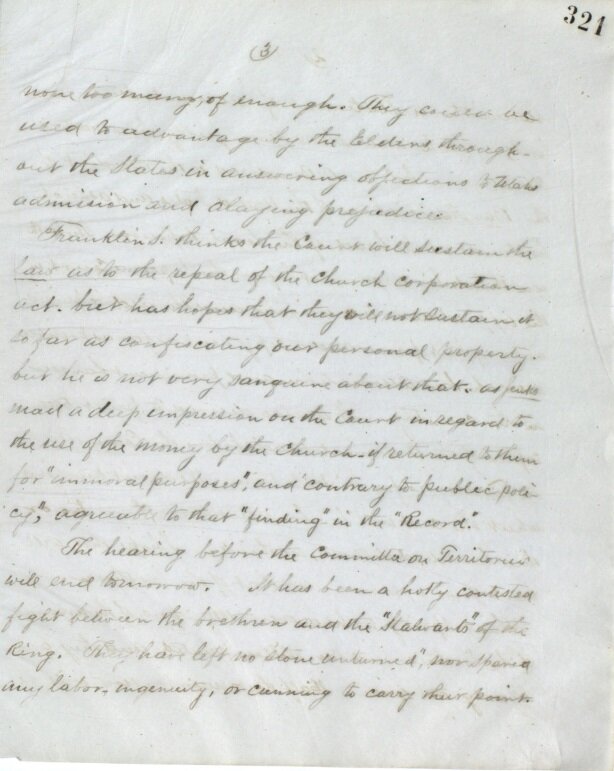 321
(3)
none too many, if enough. They could be
used to advantage by the Elders through-
out the States in answering objections to Utahs
admission and alaying prejudice.
Franklin S. thinks the Court will sustain the
law as to the repeal of the Church corporation
act. but has hopes that they will not sustain it
so far as confiscating our personal property.
but he is not very sanguine about that. as
mad a deep impression on the Court in regard to
the use of the money by the Church - if returned to them
for "immoral purposes", and "contrary to public poli-
cy", agreeable to that "finding" in the "Record".
The hearing before the Committee on Territories
will end tomorrow. It has been a hotly contested
fight between the brethren and the "Stalwarts" of the
Ring. They have left no stone unturned", nor spared
any labor, ingenuity, or cunning to carry their point.